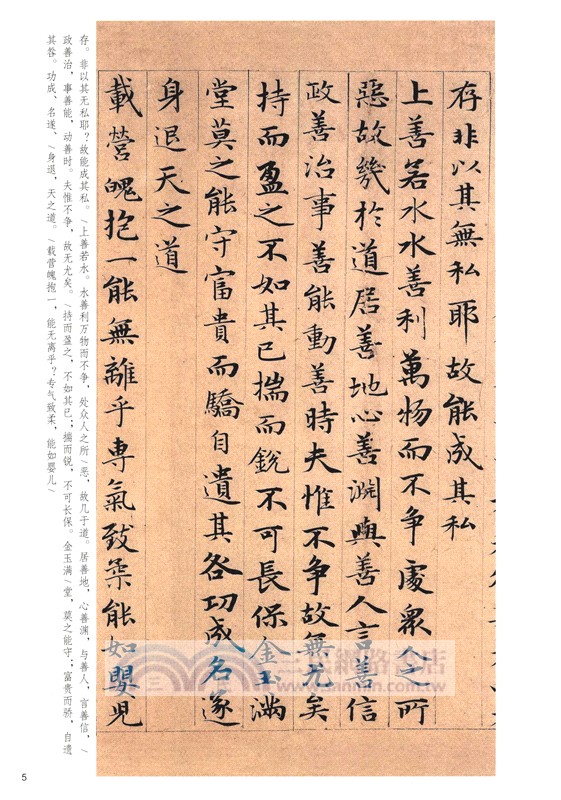 存非以其無私耶故能成其私
上善若水水善利萬物而不争處衆人之所
惡故幾於道居善地心善淵與善人言善信
政善治事善能動善時夫惟不争故無尤矣
持而盈之不如其已揣而銳不可長保金玉滿
堂莫之能守富貴而驕自遺其咎功成名遂
身退天之道
載營魄抱一能無離乎專氣致柔能如嬰兒
存。非以其无私耶？故能成其私。\上善若水。水善利万物而不争，处众人之所\恶，故几于道。居善地，心善渊，与善人，言善信，\
政善治，事善能，动善时。夫惟不争，故无尤矣。\持而盈之，不如其已；揣而锐，不可长保。金玉满\堂，莫之能守；富贵而骄，自遗
其咎。功成、名遂、\身退，天之道。\载营魄抱一，能无离乎？专气致柔，能如婴儿\
5
三民網路書店